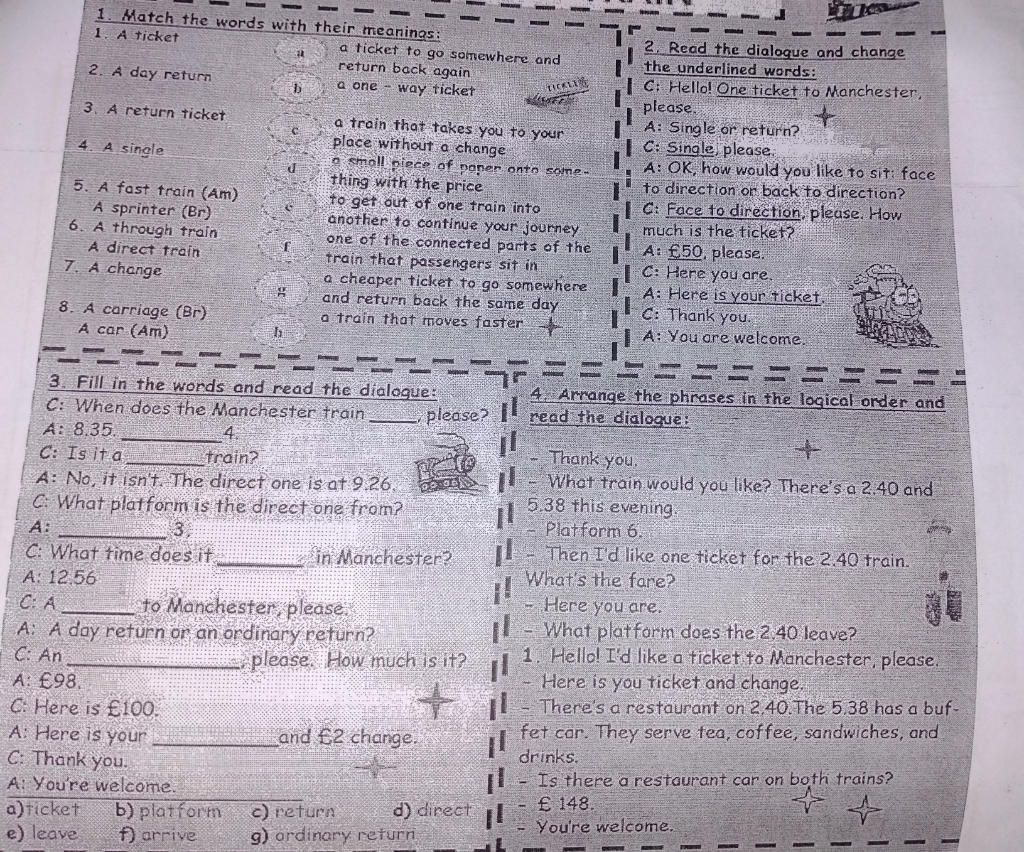 1. Match the words with their meanings:
1. A ticket
2. A day return
3. A return ticket
4. A single
5. A fast train (Am)
A sprinter (Br)
6. A through train
A direct train
7. A change
8. A carriage (Br)
A car (Am)
a
a ticket to go somewhere and
return back again
b
a one - way ticket
c
a train that takes you to your
place without a change
d
a small piece of paper onto some-
thing with the price
e
to get out of one train into
another to continue your journey
f
one of the connected parts of the
train that passengers sit in
g
a cheaper ticket to go somewhere
and return back the same day
h
a train that moves faster
TICKETS
2. Read the dialogue and change
the underlined words:
C: Hello! One ticket to Manchester,
please.
A: Single or return?
C: Single, please.
A: OK, how would you like to sit: face
to direction or back to direction?
C: Face to direction, please. How
much is the ticket?
A: £50, please.
C: Here you are.
A: Here is your ticket.
C: Thank you.
A: You are welcome.
3. Fill in the words and read the dialogue:
C: When does the Manchester train _____, please?
A: 8.35. _________ 4.
C: Is it a _______ train?
A: No, it isn't. The direct one is at 9.26.
C: What platform is the direct one from?
A: __________ 3.
C: What time does it ________ in Manchester?
A: 12.56
C: A _______ to Manchester, please.
A: A day return or an ordinary return?
C: An ________________, please. How much is it?
A: £98.
C: Here is £100.
A: Here is your ____________ and £2 change.
C: Thank you.
A: You're welcome.
a)ticket b) platform c) return d) direct
e) leave f) arrive g) ordinary return
4. Arrange the phrases in the logical order and
read the dialogue:
- Thank you.
- What train would you like? There's a 2.40 and
5.38 this evening.
- Platform 6.
- Then I'd like one ticket for the 2.40 train.
What's the fare?
- Here you are.
- What platform does the 2.40 leave?
1. Hello! I'd like a ticket to Manchester, please.
- Here is you ticket and change.
- There's a restaurant on 2.40.The 5.38 has a buf-
fet car. They serve tea, coffee, sandwiches, and
drinks.
- Is there a restaurant car on both trains?
- £ 148.
- You're welcome.